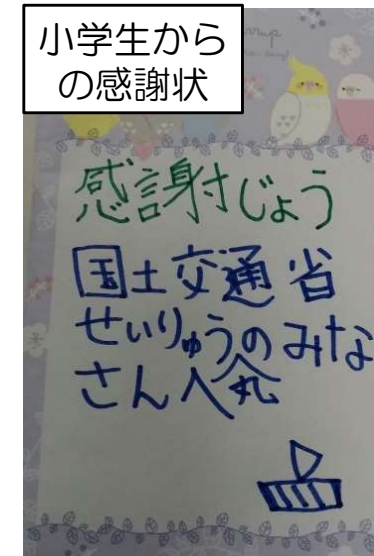 小学生から
の感謝状
感謝じょう
国土交通省
せいりゅうのみな
さんへ